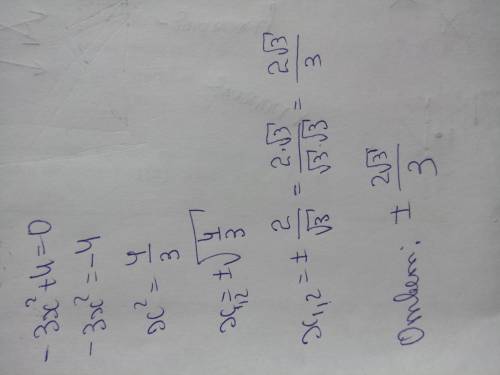 -3x²+4=0
-3x²=-4
x²=4/3
x₁,₂=±√(4/3)
x₁,₂=±2/√3=2·√3/√3·√3=2√3/3
Ответ: ±2√3/3